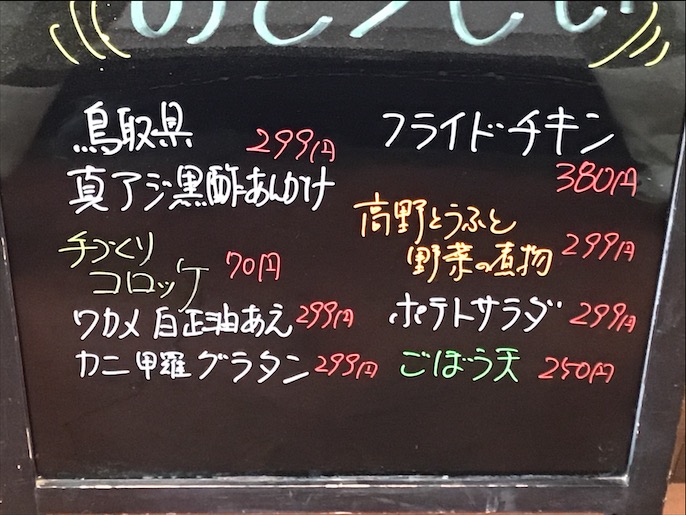 鳥取県 299円
真アジ黒酢あんかけ
手づくり
コロッケ 70円
ワカメ 白正油あえ 299円
カニ甲羅グラタン 299円
フライドチキン
380円
高野とうふと
野菜の煮物 299円
ポテトサラダ 299円
ごぼう天 250円